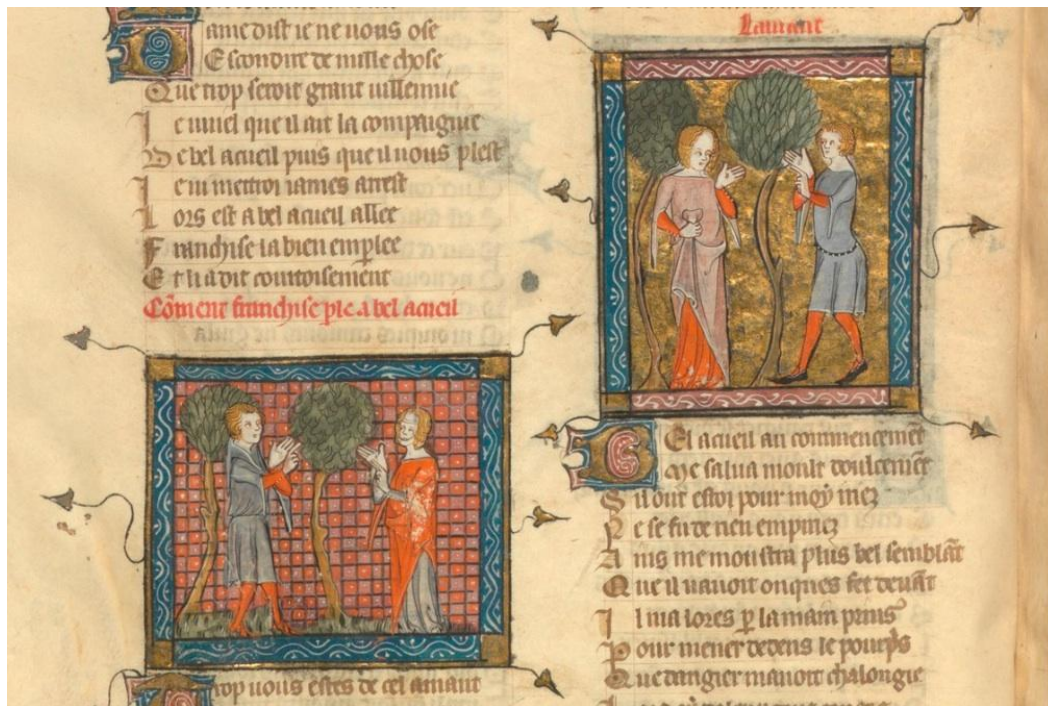 Dame dist ie ne uous ose
Escondire de nulle chose
Que trop seroit grant uillennie
Ie uuiel que il ait la compaignie
De bel acueil puis que il uous plest
Ie ni mettroi iames arrest
Lors est a bel acueil allee
Franchise la bien emplee
Et li a dit courtoisement
Cōment franchise ple a bel acueil
Trop uous estes de cel amant
Laurent
Bel acueil au commencemēt
Me salua moult doulcemēt
Sil out estoi pour moy iriez
Ne se fu de rien empiriez
Ains me moustra plus bel semblāt
Que il nauoit onques fet deuāt
Il ma lores p la main prins
Pour mener dedens le pourpis
Que dangier mauoit chalongie